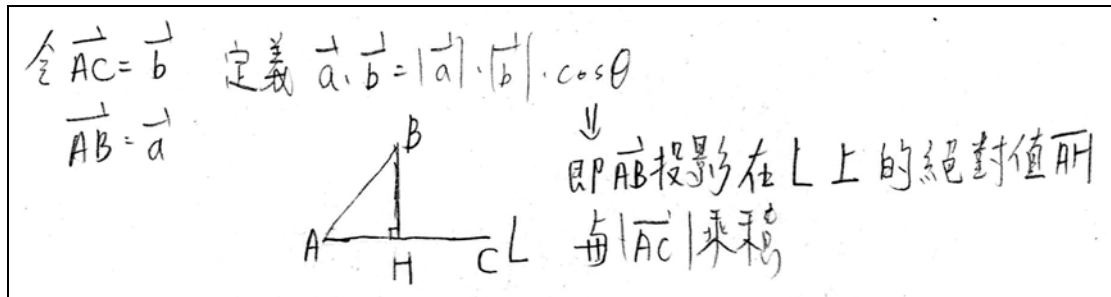 令 $\overrightarrow{AC}=\vec{b}$ 定義 $\vec{a}\cdot\vec{b}=|\vec{a}|\cdot|\vec{b}|\cdot\cos\theta$
$\overrightarrow{AB}=\vec{a}$
⇓
即 $\overrightarrow{AB}$ 投影在 L 上的絕對值 $\overline{AH}$
與 $|\overrightarrow{AC}|$ 乘積
B
A H C L